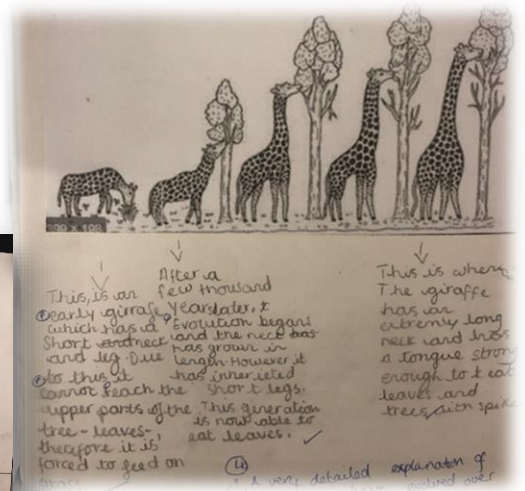 This, is an
① early girrafe
which has a
short neck
and leg. Due
② to this it
cannot reach the
upper parts of the
tree - leaves -,
therefore it is
forced to feed on
After a
few thousand
years later,
Evolution began
and the neck has
has grown in
length. However it
has inherieted
short legs.
This generation
is now able to
eat leaves. ✓
This is where
The giraffe
has an
extremly long
neck and has
a tongue strong
enough to t eat
leaves and
trees with
A very detailed explanation of
evolved over